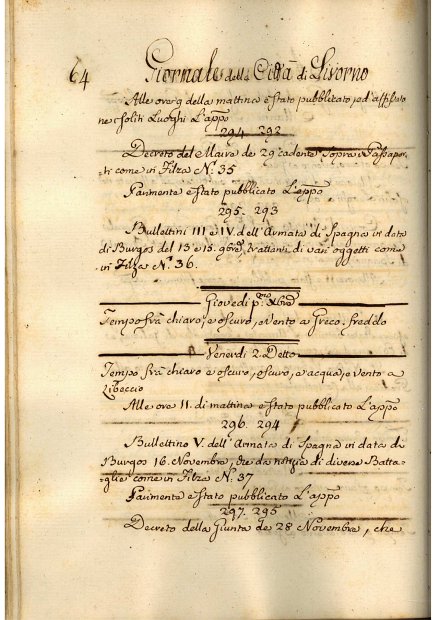 64 Giornale della Città di Livorno
Alle ore 9 della mattina è stato pubblicato, ed affisso
ne soliti Luoghi L'appo
294 292
Decreto del Maire de 29 cadente sopra i Passapor-
ti come in Filza N. 35
Parimente è stato pubblicato L'appo
295. 293
Bullettini III e IV. dell'Armata di Spagna in data
di Burgos del 13 e 15. 9bre, trattanti di varj oggetti come
in Filza N. 36.
Giovedi pmo Xbre
Tempo frà chiaro, e oscuro, vento a Greco freddo
Venerdi 2. Detto
Tempo frà chiaro e oscuro, oscuro, e acqua, e vento a
Libeccio
Alle ore 11. di mattina è stato pubblicato L'appo
296. 294
Bullettino V. dell'Armata di Spagna in data di
Burgos 16. Novembre, che da notizia di diverse Batta-
glie come in Filza N. 37
Parimente è stato pubblicato L'appo
297. 295
Decreto della Giunta de 28 Novembre, che